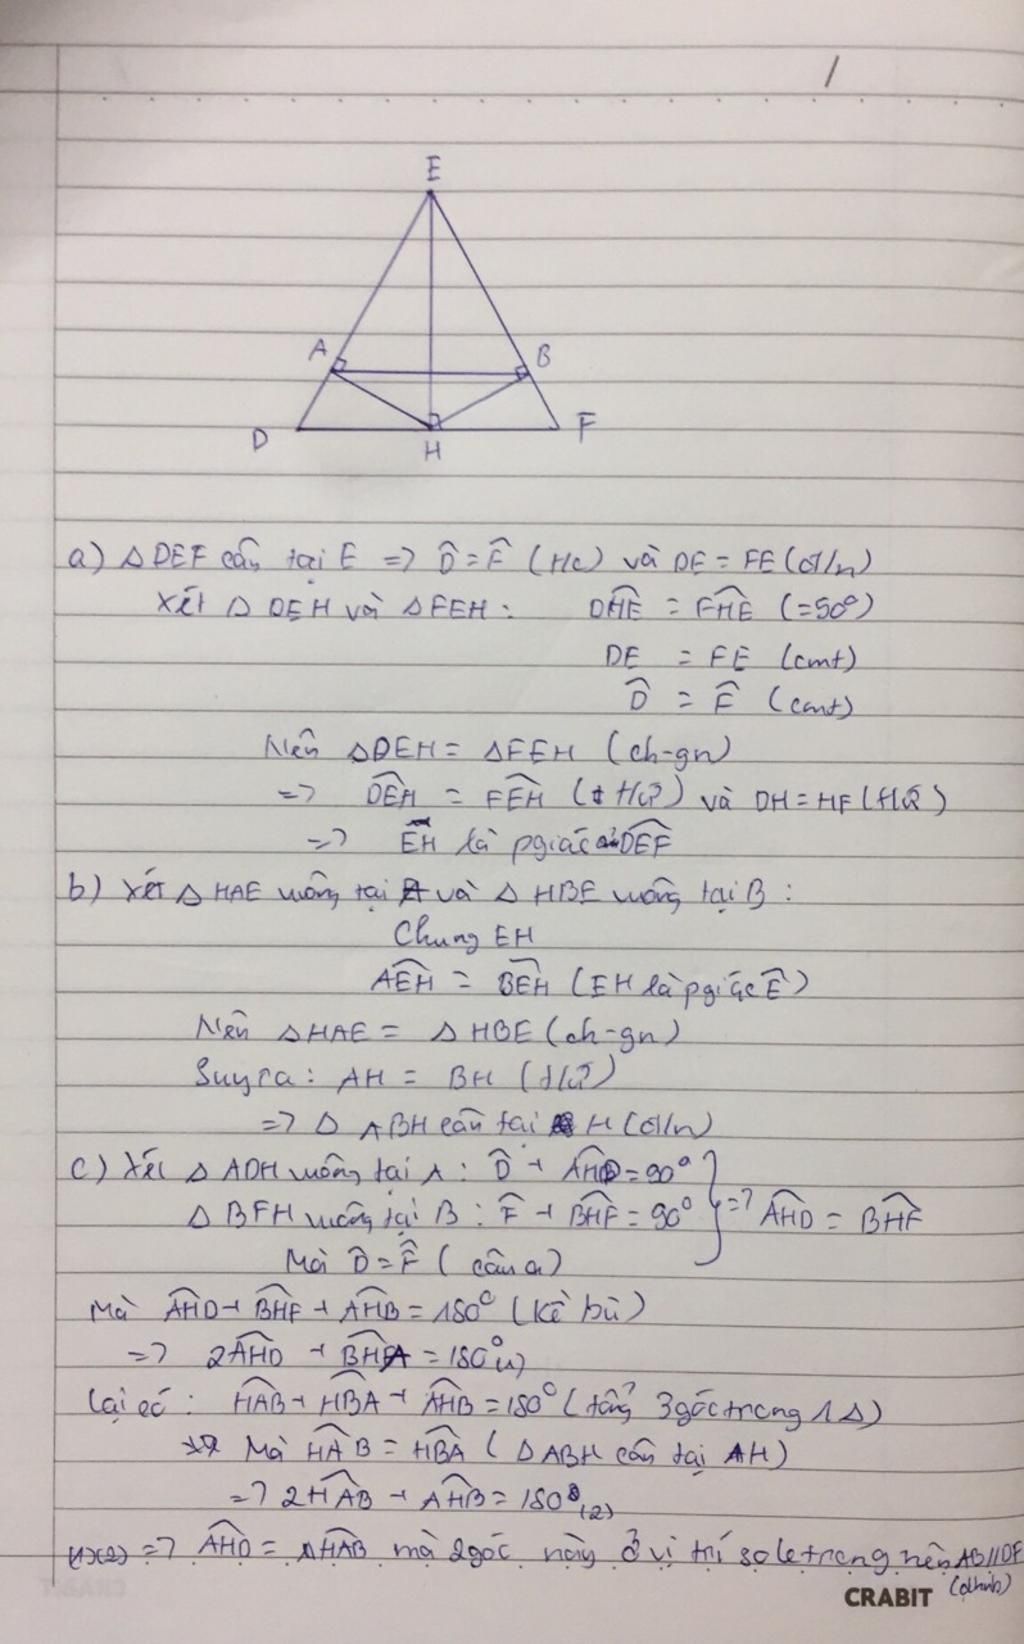 E
A
B
D
H
F
a) Δ DEF cân tại E => D̂ = F̂ (t/c) và DE = FE (đ/n)
Xét Δ DEH và Δ FEH : DHE = FHE (=90°)
DE = FE (cmt)
D̂ = F̂ (cmt)
Nên ΔDEH = ΔFEH (ch-gn)
=> DEH = FEH và DH = HF
=> EH là pgiác của DEF
b) Xét Δ HAE vuông tại A và Δ HBE vuông tại B :
Chung EH
AEH = BEH (EH là pgiác Ê)
Nên ΔHAE = ΔHBE (ch-gn)
Suy ra : AH = BH
=> Δ ABH cân tại H (đ/n)
c) Xét Δ ADH vuông tại A : D̂ + AHD = 90°
Δ BFH vuông tại B : F̂ + BHF = 90° } => AHD = BHF
Mà D̂ = F̂ (câu a)
Mà AHD + BHF + AHB = 180° (kề bù)
=> 2AHD + BHA = 180° (1)
Lại có : HAB + HBA + AHB = 180° (tổng 3 góc trong 1 Δ)
Mà HAB = HBA ( Δ ABH cân tại H)
=> 2HAB + AHB = 180° (2)
(1)(2) => AHD = HAB mà 2 góc này ở vị trí so le trong nên AB // DF
(đhnb)
CRABIT